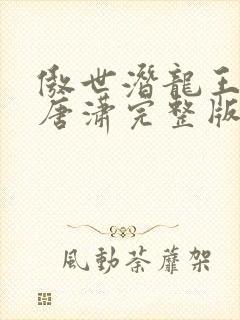 傲世潛龍王
唐瀟完整版
風動荼蘼架